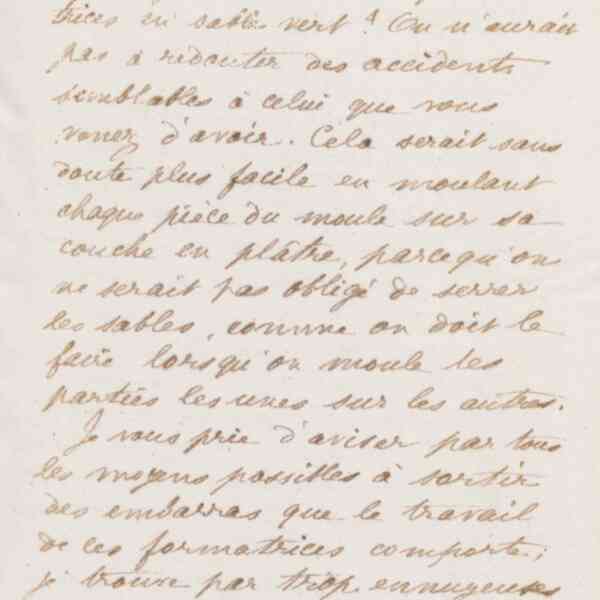 trices en sable vert ? On n'aurait
pas à redouter des accidents
semblables à celui que vous
venez d'avoir. Cela serait sans
doute plus facile en moulant
chaque pièce du moule sur sa
couche en plâtre, parcequ'on
ne serait pas obligé de serrer
les sables, comme on doit le
faire lorsqu'on moule les
parties les unes sur les autres.
Je vous prie d'aviser par tous
les moyens possibles à sortir
des embarras que le travail
de ces formatrices comporte ;
je trouve par trop ennuyeuses